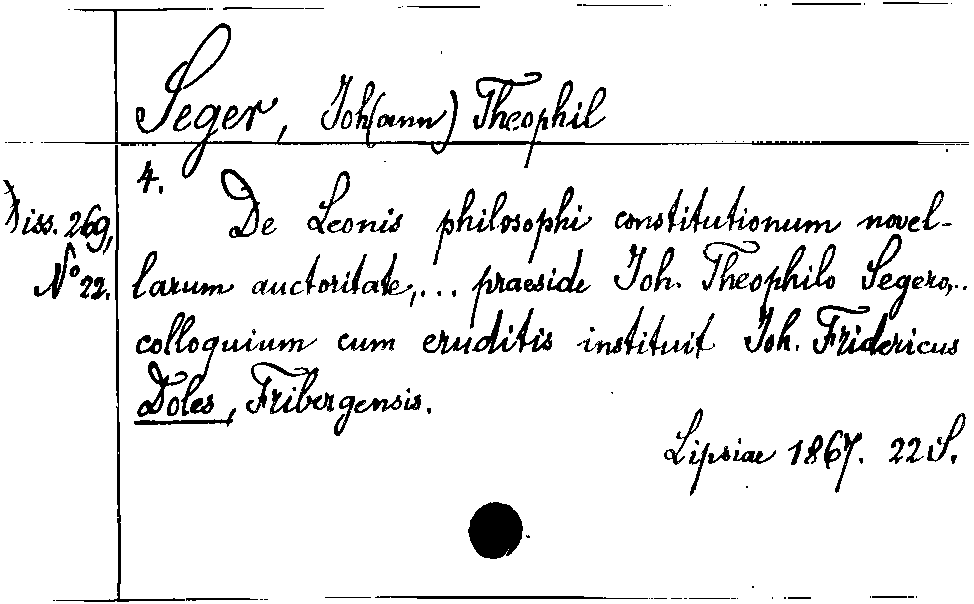 Seger, Joh(ann) Theophil
4.
Diss. 269,
N° 22.
De Leonis philosophi constitutionum novel-
larum auctoritate,... praeside Joh. Theophilo Segero,..
colloquium cum eruditis instituit Joh. Fridericus
Doles, Fribergensis.
Lipsiae 1867. 22 S.